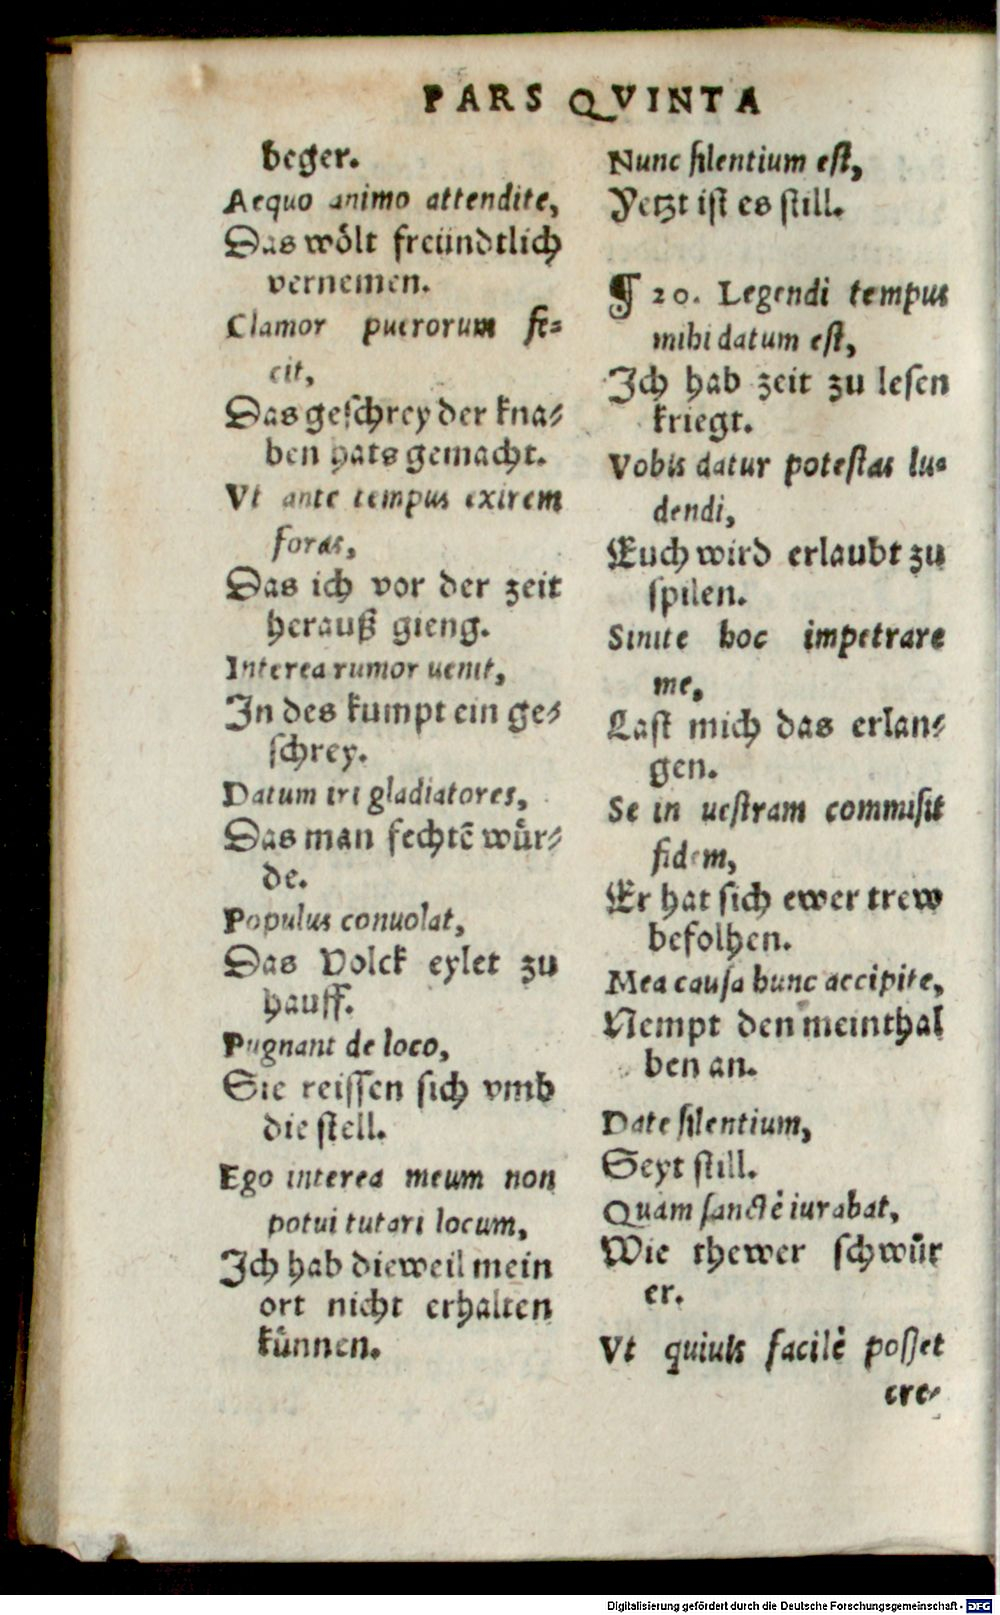 PARS QVINTA
beger.
Aequo animo attendite,
Das wölt freündtlich
vernemen.
Clamor puerorum fe=
cit,
Das geschrey der kna=
ben hats gemacht.
Vt ante tempus exirem
foras,
Das ich vor der zeit
herauß gieng.
Interea rumor uenit,
In des kumpt ein ge=
schrey.
Datum iri gladiatores,
Das man fechtē wür=
de.
Populus conuolat,
Das Volck eylet zu
hauff.
Pugnant de loco,
Sie reissen sich vmb
die stell.
Ego interea meum non
potui tutari locum,
Ich hab dieweil mein
ort nicht erhalten
künnen.
Nunc silentium est,
Yetzt ist es still.
¶ 20. Legendi tempus
mihi datum est,
Ich hab zeit zu lesen
kriegt.
Vobis datur potestas lu=
dendi,
Euch wird erlaubt zu
spilen.
Sinite hoc impetrare
me,
Last mich das erlan=
gen.
Se in uestram commisit
fidem,
Er hat sich ewer trew
befolhen.
Mea causa hunc accipite,
Nempt den meinthal
ben an.
Date silentium,
Seyt still.
Quam sanctè iurabat,
Wie thewer schwůr
er.
Vt quiuis facilè posset
cre=
Digitalisierung gefördert durch die Deutsche Forschungsgemeinschaft - DFG